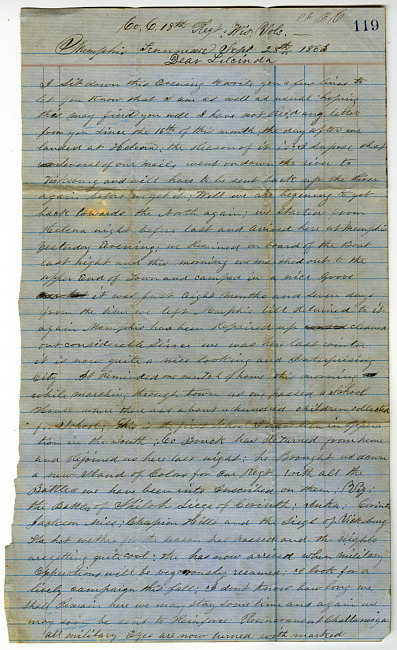 119
Co, C, 18th Regt, Wis, Vols,
Memphis Tennessee, Sept 28th, 1863
Dear Lucinda
I sit down this Evening to write you a few lines to
let you know that I am as well as usual hoping
this may find you well I have not Recd any letter
from you since the 16th of this month, the day after we
landed at Helena; the Reason of it is I supose that
several of our mails went on down the river to
Vicksburg and will have to be sent back up the River
again before we get it; Well we are begining to get
back towards the North again; we started from
Helena night before last and arrived here at Memphis
yesterday Evening; we Remained on board of the Boat
last night and this morning we marched out to the
upper End of Town and camped in a nice Grove
it was just Eight months and seven days
from the time we left Memphis till Returned to it
again Memphis has been Repaired up cleaned
out considerable Since we was here last winter
it is now quite a nice looking and Enterprising
City It Reminded me much of home this morning
while marching through town as we passed a School
House where there was about a hundred children collected
for School; This is the first School I
in the South; Co Bouck has Returned from home
and Rejoined us here last night; he Brought us down
a new Stand of Colors for our Regt with all the
Battles we have been into Inscribed on them; Viz;
the Battles of Shiloh, Siege of Corinth; Iuka; Corinth
Jackson Miss; Champion Hills and the Siege of Vicksburg
The hot weather for the season has passed and the nights
are getting quite cool; the has now arrived when military
Opperations will be vigorously resumed; I look for a
lively campaign this fall; I dont know how long we
shall Remain here we may stay some time and again we
may soon be sent to Reinforce Rosencrans at Chattanooga
all military Eyes are now turned with marked